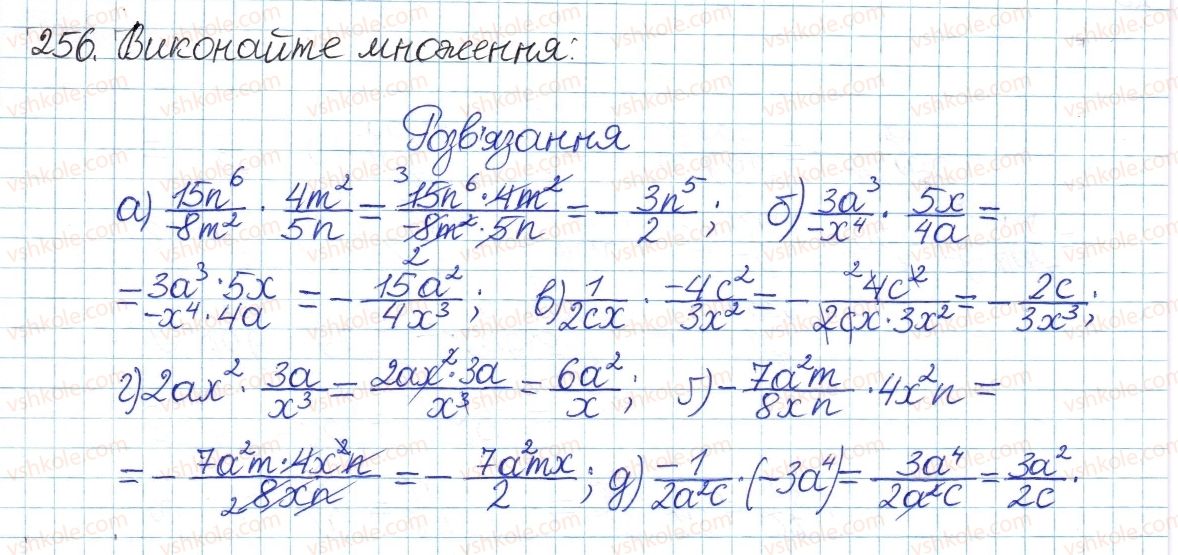 256. Виконайте множення:
Розв'язання
а) 15n⁶/-8m² · 4m²/5n = 15n⁶·4m²/-8m²·5n = - 3n⁵/2 ; б) 3a³/-x⁴ · 5x/4a =
= 3a³·5x/-x⁴·4a = - 15a²/4x³ ; в) 1/2cx · -4c²/3x² = - 4c²/2cx·3x² = - 2c/3x³ ;
г) 2ax² · 3a/x³ = 2ax²·3a/x³ = 6a²/x ; ґ) - 7a²m/8xn · 4x²n =
= - 7a²m·4x²n/8xn = - 7a²mx/2 ; д) -1/2a²c · (-3a⁴) = 3a⁴/2a²c = 3a²/2c .